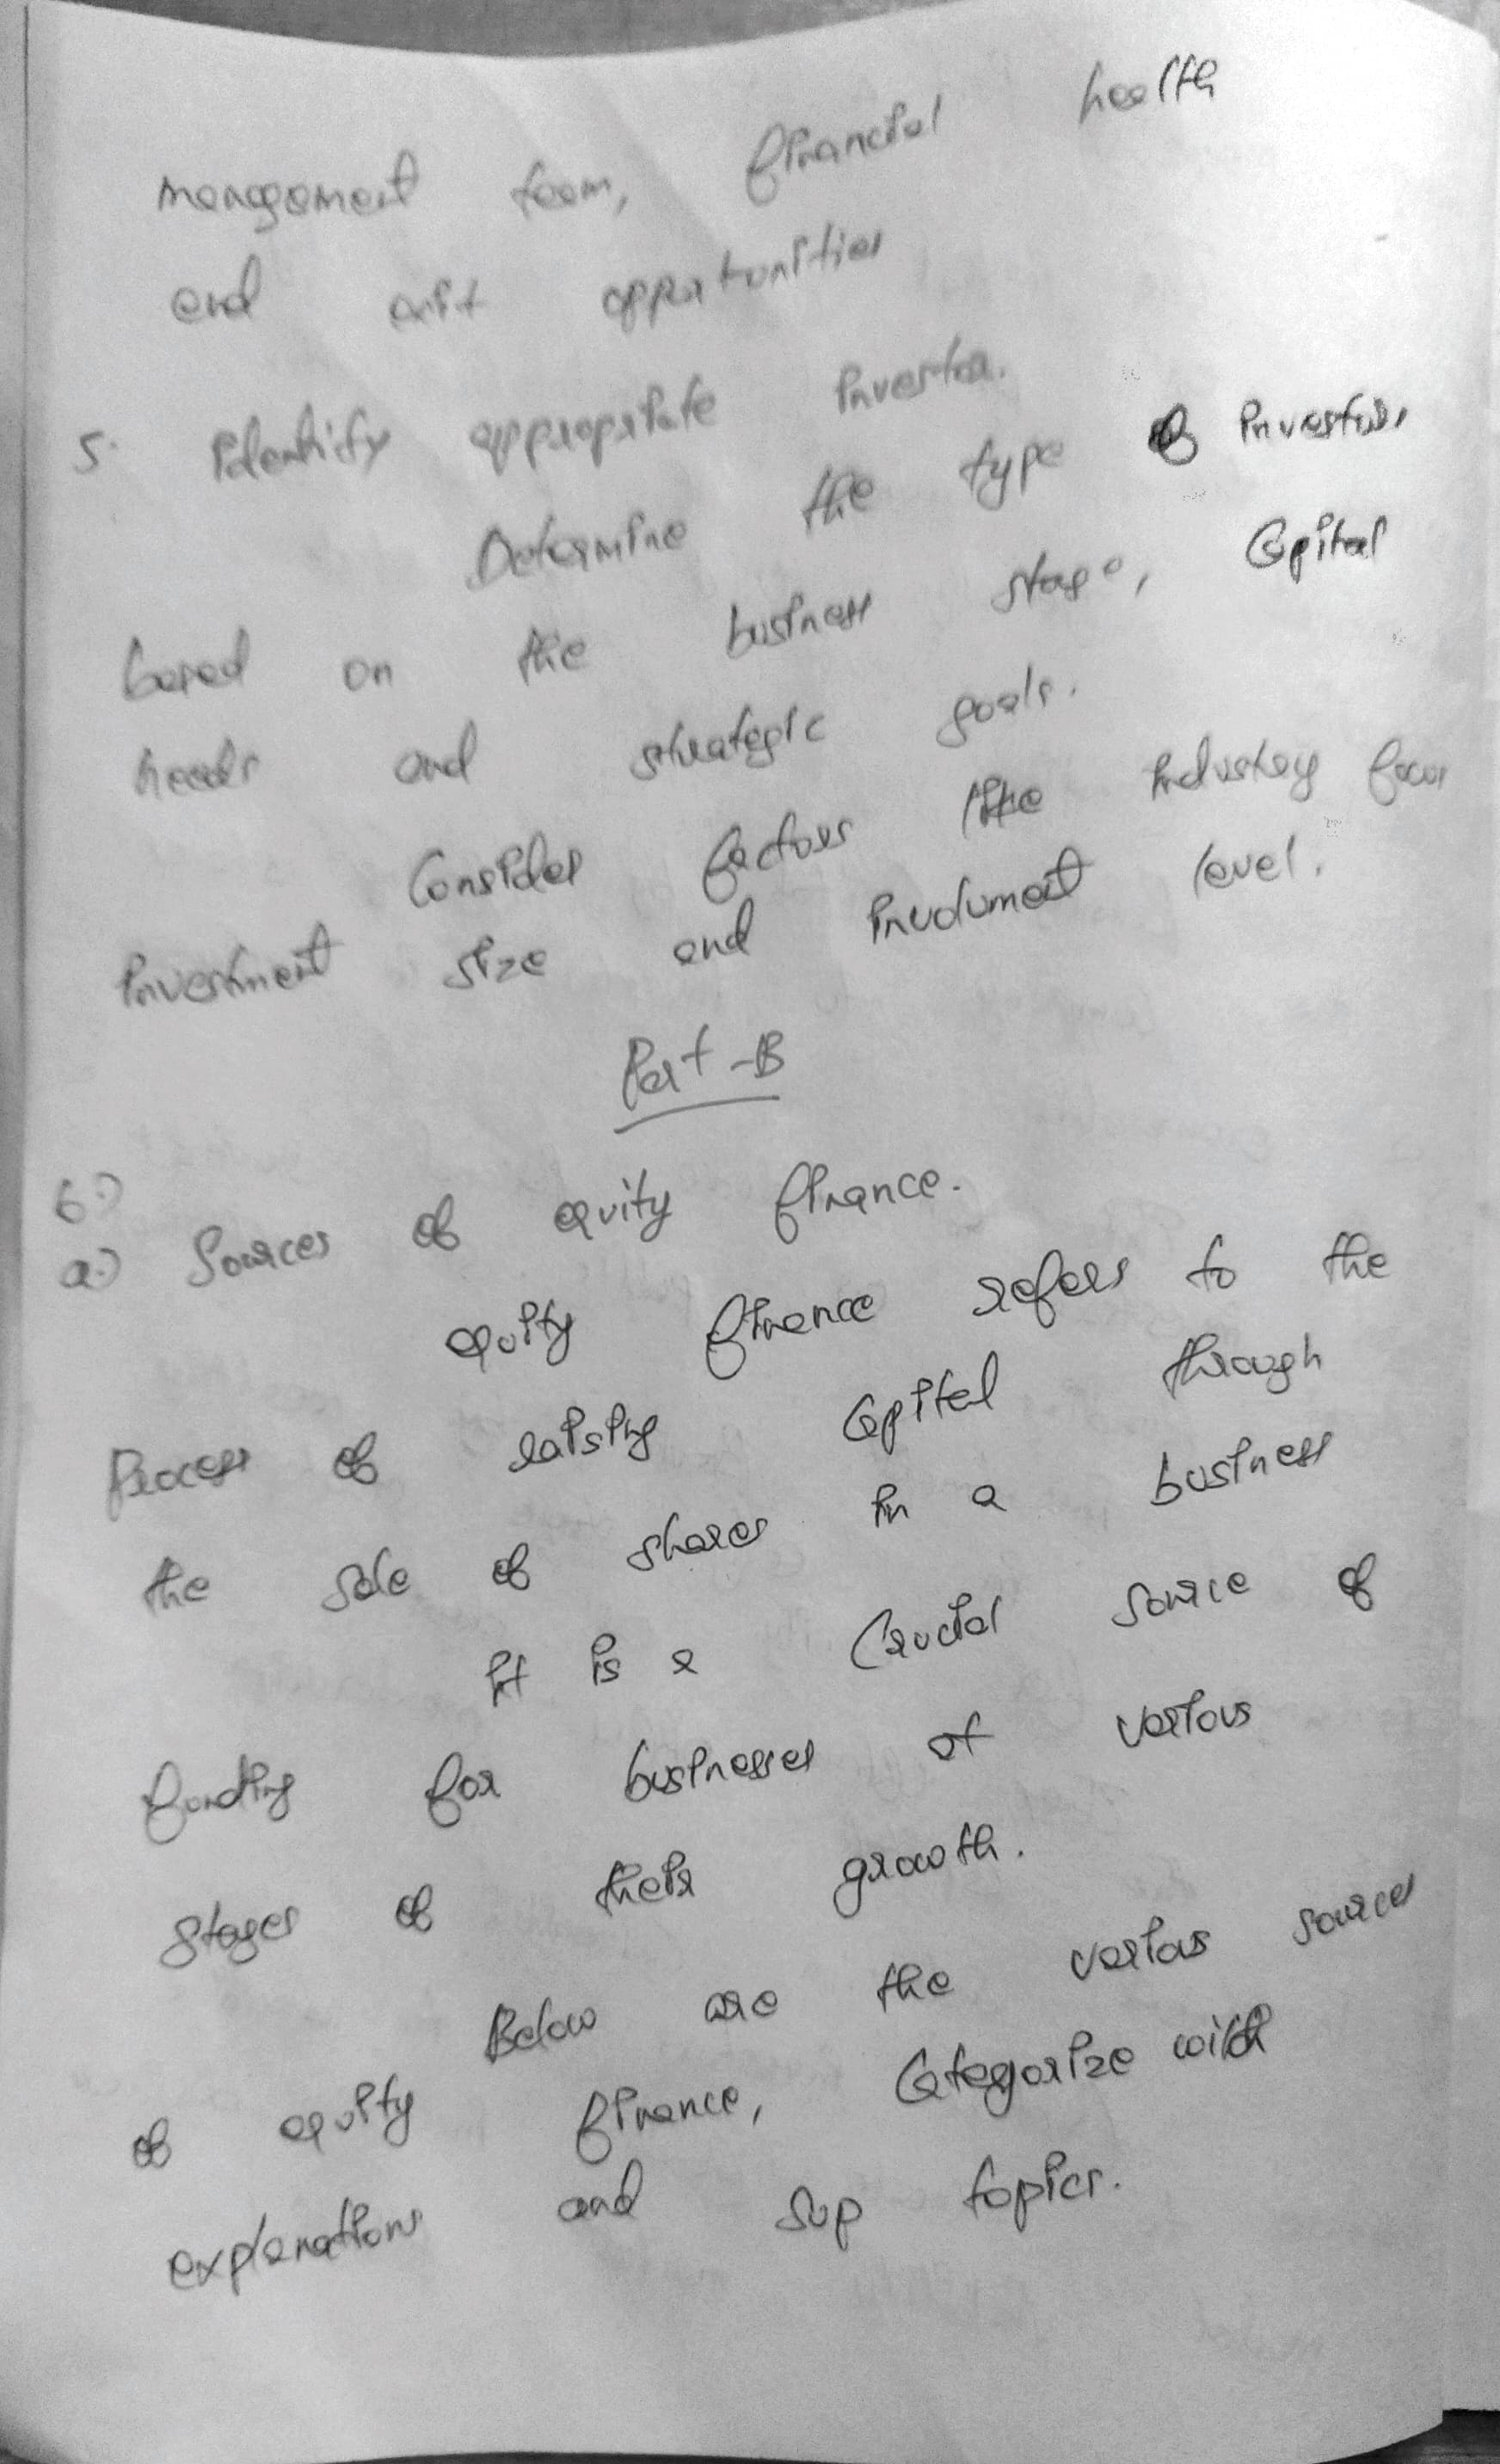 management team, financial health
and exit opportunities
5. Identify appropriate investor.
Determine the type of investor,
based on the business stage, Capital
needs and strategic goals.
Consider factors like industry focus
investment size and involument level.
Part-B
6.)
a.) Sources of equity finance.
equity finance refers to the
Process of raising Capital through
the sale of shares in a business
it is a Crucial source of
funding for businesses at various
stages of their growth.
Below are the various sources
of equity finance, Categorize with
explanations and sup topics.